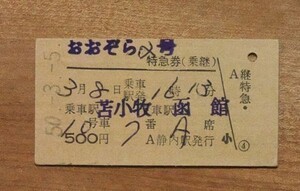 おおぞら2号
特急券(乗継)
3月8日 乗車駅発 16時13分
乗車駅 苫小牧 函館
10号車 7番A席
500円 A静内駅発行
50.3.-5
A継特急・
小
④